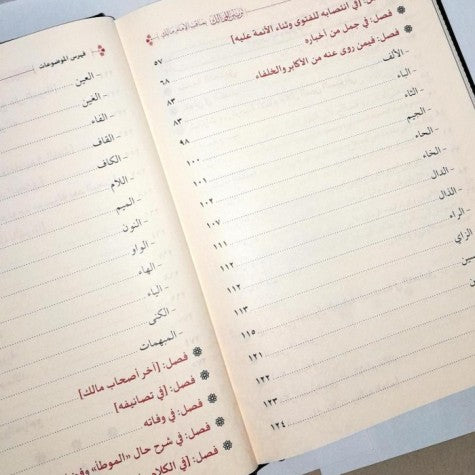 تزيين الممالك بمناقب الإمام مالك
فصل: [في انتصابه للفتوى وثناء الأئمة عليه] ٥٧
فصل: في جمل من أخباره ٦٨
فصل: فيمن روى عنه من الأكابر والخلفاء ٨٣
- الألف ٨٣
- الباء ٩٨
- الثاء ١٠٠
- الجيم ١٠١
- الحاء ١٠٢
- الخاء ١٠٧
- الدال
- الذال ١١٢
- الراء ١١٢
الزاي ١١٣
١١٥
١٢١
١٢٢
١٢٣
١٢٤
فهرس الموضوعات
- العين
- الغين
- الفاء
- القاف
- الكاف
- اللام
- الميم
- النون
- الواو
- الهاء
- الياء
- الكنى
- المبهمات
فصل: [آخر أصحاب مالك]
فصل: [في تصانيفه]
فصل: في وفاته
فصل: في شرح حال «الموطأ»
فصل: [في الكلام